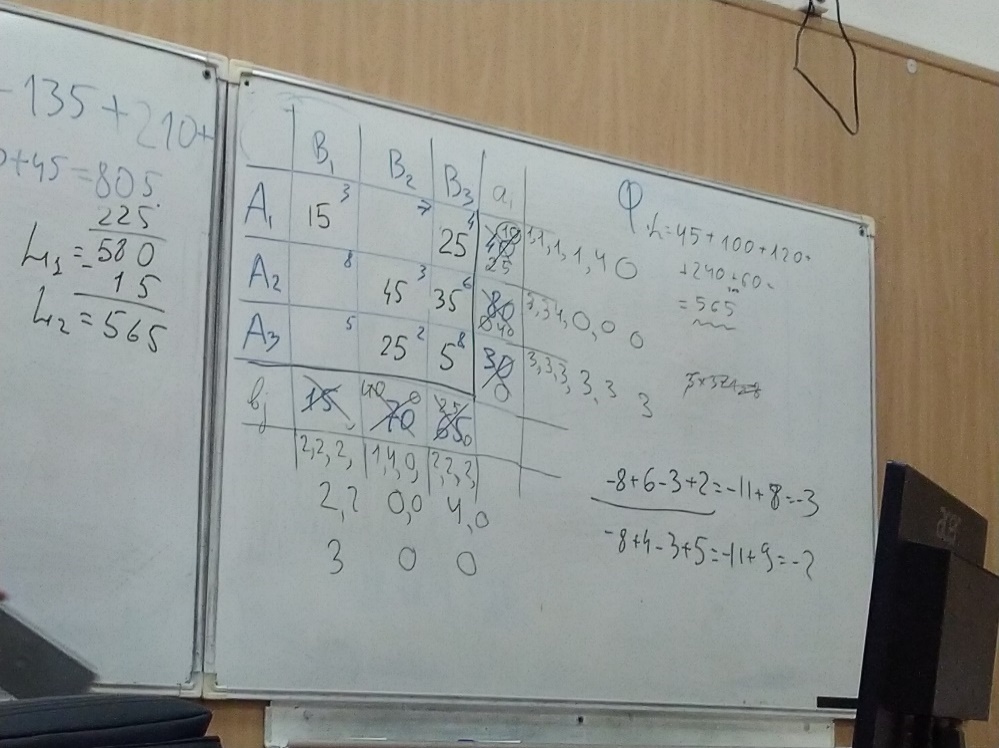 -135+210+
0+45=805
225
L₁=580
-15
L₂=565
B₁ B₂ B₃ a₁
A₁ 15 3 7 25 4 40 10 25 1,1,1,1,4 0
A₂ 8 45 3 35 6 80 0 40 0,0 0
A₃ 5 25 2 5 8 30 0 3,3,3,3,3 3
bj 15 40 70 0 0
2,2,2, 1,4,0, 2,2,2,
2,2 0,0 4,0
3 0 0
Φ L=45+100+120+
+240+60=
=565
-8+6-3+2=-11+8=-3
-8+4-3+5=-11+9=-2
acer